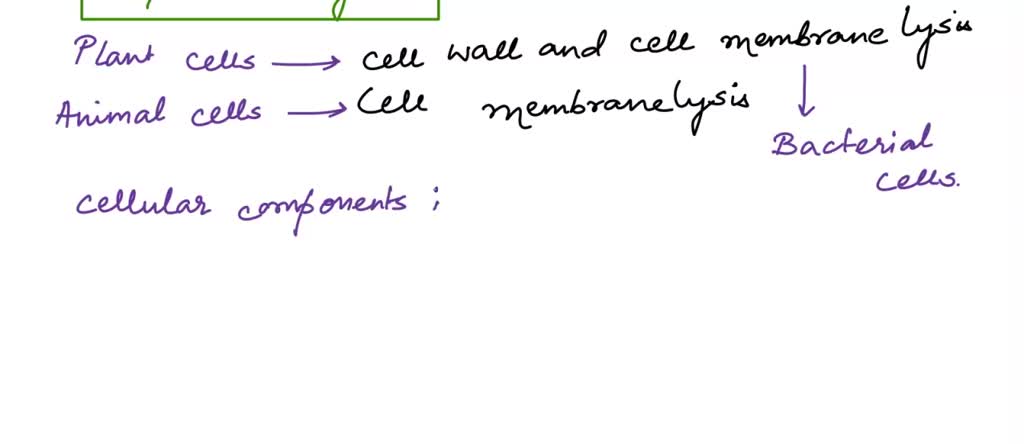 Plant cells → cell wall and cell membrane lysis
Animal cells → Cell membrane lysis
↓
Bacterial
cells.
cellular components ;